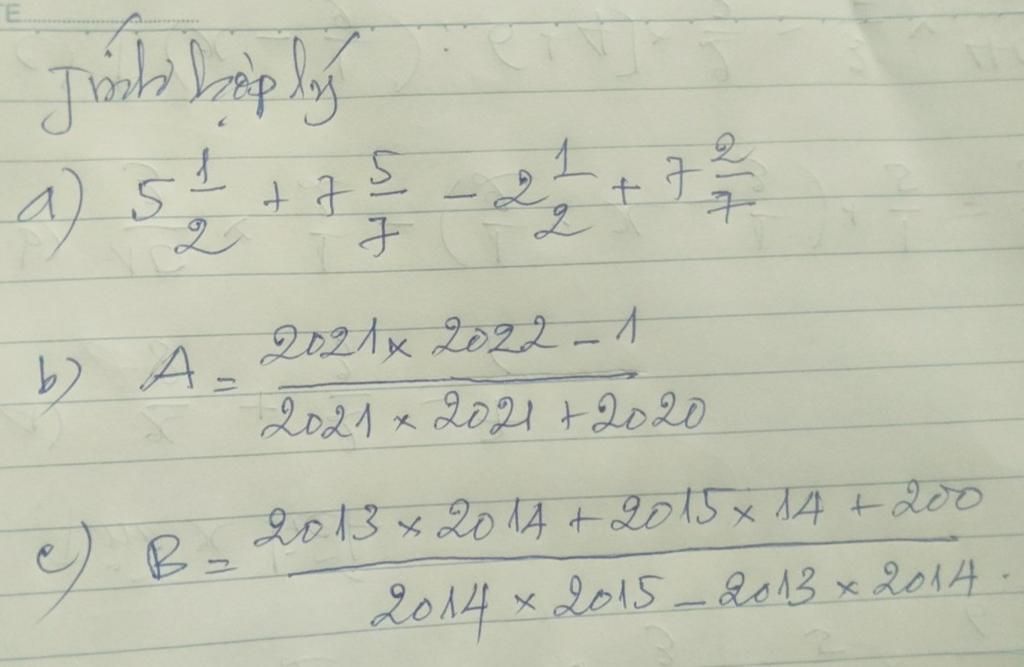 Tính hợp lý
a) 5 1/2 + 7 5/7 - 2 1/2 + 7 2/7
b) A = (2021 x 2022 - 1)/(2021 x 2021 + 2020)
c) B = (2013 x 2014 + 2015 x 14 + 200)/(2014 x 2015 - 2013 x 2014).